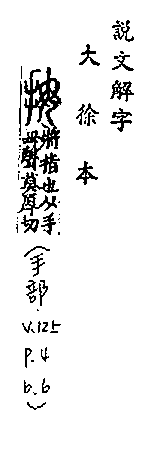 説文解字
大徐本
拇
將指也从手
母聲莫厚切
(手部
v.125
p.4
b.6)